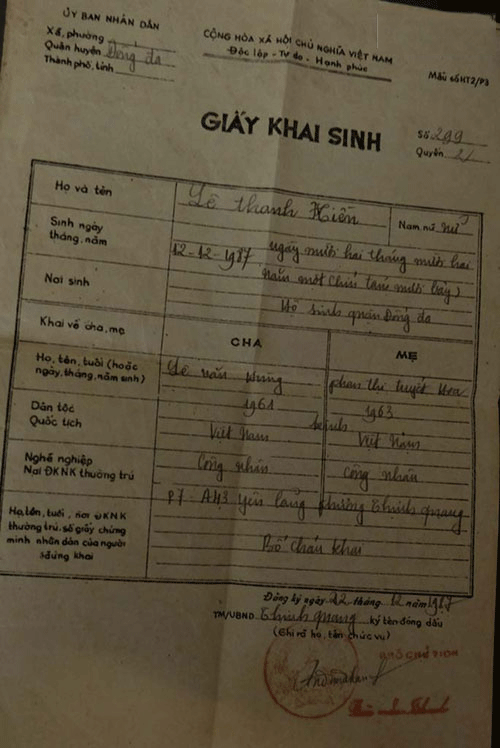 ỦY BAN NHÂN DÂN
Xã, phường
Quận huyện Đống đa
Thành phố, tỉnh
CỘNG HÒA XÃ HỘI CHỦ NGHĨA VIỆT NAM
Độc lập - Tự do - Hạnh phúc
Mẫu số HT2/P3
GIẤY KHAI SINH
Số 299
Quyển 2/
Họ và tên
Lê thanh Hiền
Nam nữ Nữ
Sinh ngày
tháng, năm
12-12-1987 ngày mười hai tháng mười hai
năm một chín tám mươi bảy)
Nơi sinh
Hộ sinh quận Đống đa
Khai về cha, mẹ
CHA
MẸ
Họ, tên, tuổi (hoặc
ngày, tháng, năm sinh)
Lê văn
1961
phan thị tuyết Hoa
1963
Dân tộc
Quốc tịch
kinh
Việt Nam
Việt Nam
Nghề nghiệp
Nơi ĐKNK thường trú
Công nhân
công nhân
P7 - A43 yên lãng phường Thịnh quang
Họ, tên, tuổi, nơi ĐKNK
thường trú, số giấy chứng
minh nhân dân của người
đứng khai
Bố cháu khai
Đăng ký ngày 22 tháng 12 năm 1987
TM/UBND Thịnh quang ký tên đóng dấu
(Ghi rõ họ, tên chức vụ)
PHÓ CHỦ TỊCH